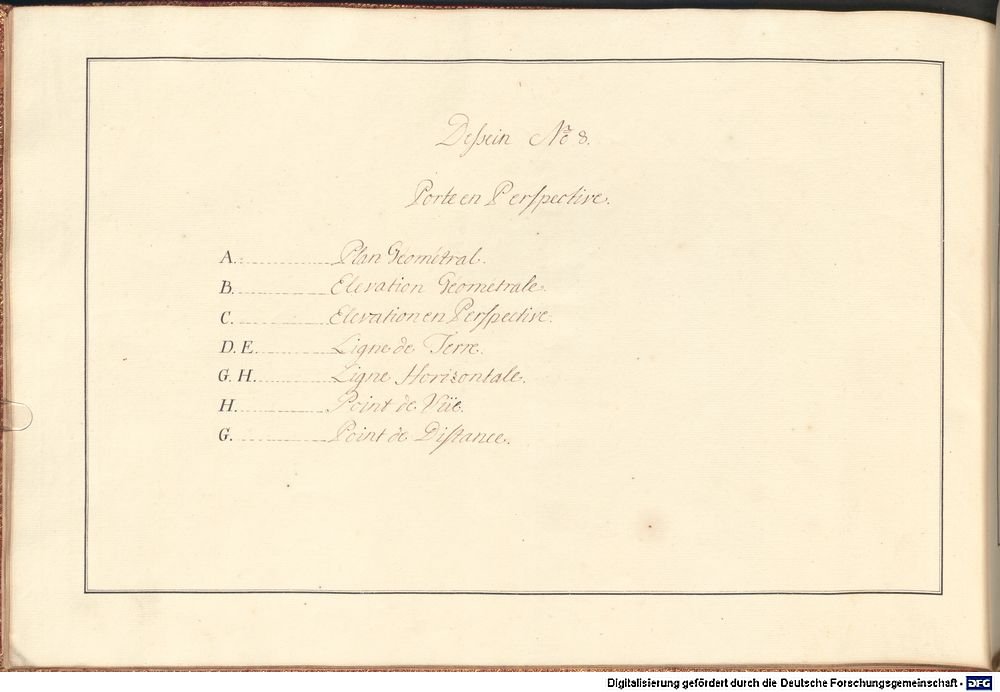 Dessein No. 8.
Porte en Perspective.
A. Plan Géométral.
B. Elevation Géométrale.
C. Elevation en Perspective.
D. E. Ligne de Terre.
G. H. Ligne Horizontale.
H. Point de Vüe.
G. Point de Distance.
Digitalisierung gefördert durch die Deutsche Forschungsgemeinschaft - DFG